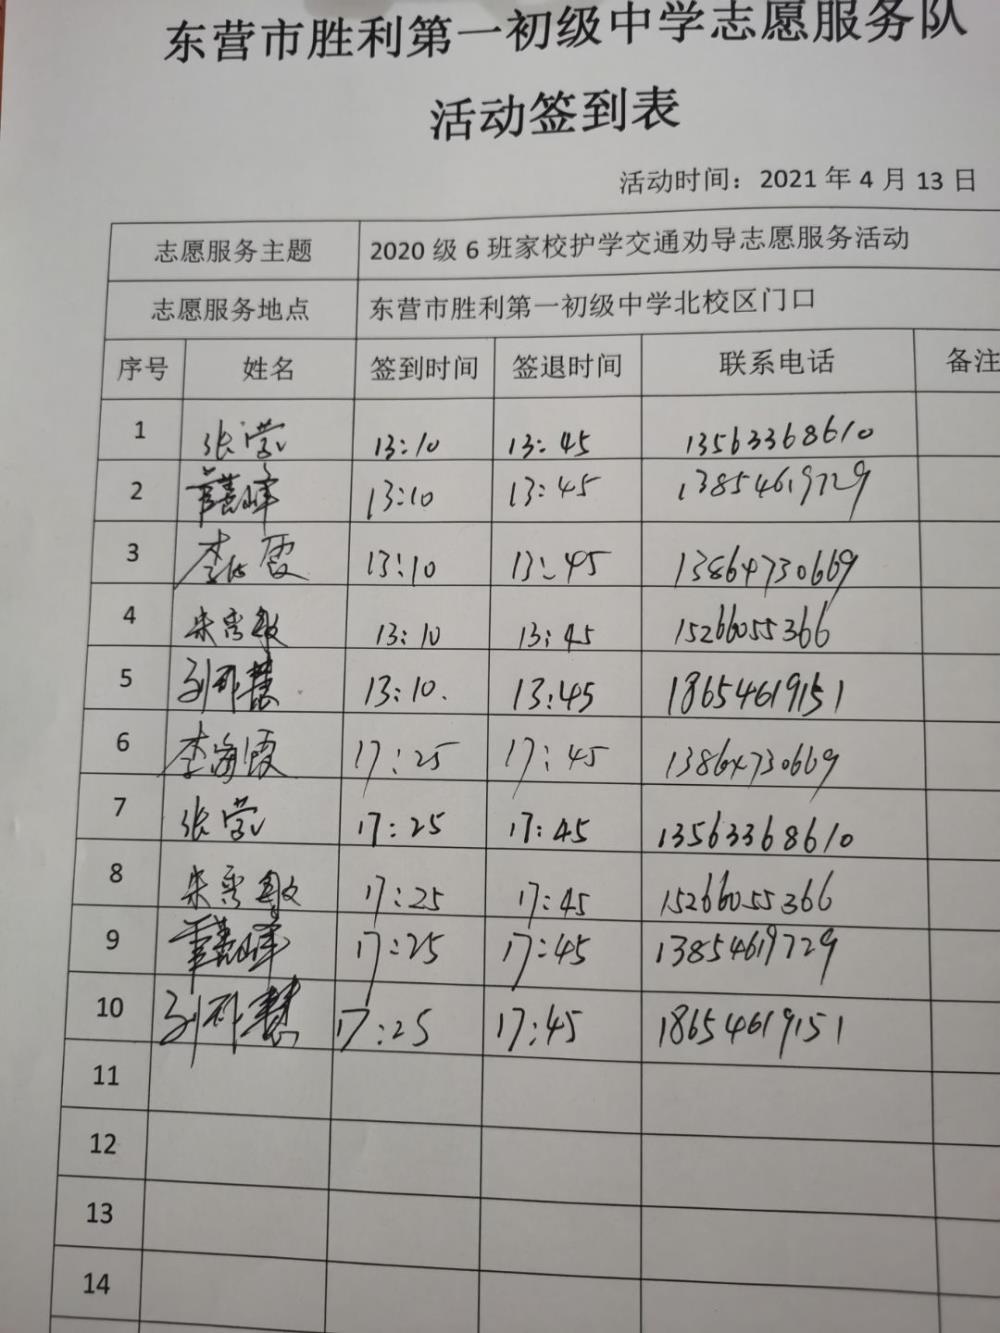 东营市胜利第一初级中学志愿服务队
活动签到表
活动时间：2021 年 4 月 13 日
志愿服务主题 2020 级 6 班家校护学交通劝导志愿服务活动
志愿服务地点 东营市胜利第一初级中学北校区门口
序号 姓名 签到时间 签退时间 联系电话 备注
1 张莹 13:10 13:45 13563368610
2 13:10 13:45 13854619729
3 李海霞 13:10 13:45 13864730669
4 13:10 13:45 15266055366
5 13:10. 13:45 18654619151
6 李海霞 17:25 17:45 13864730669
7 张莹 17:25 17:45 13563368610
8 17:25 17:45 15266055366
9 17:25 17:45 13854619729
10 17:25 17:45 18654619151
11
12
13
14